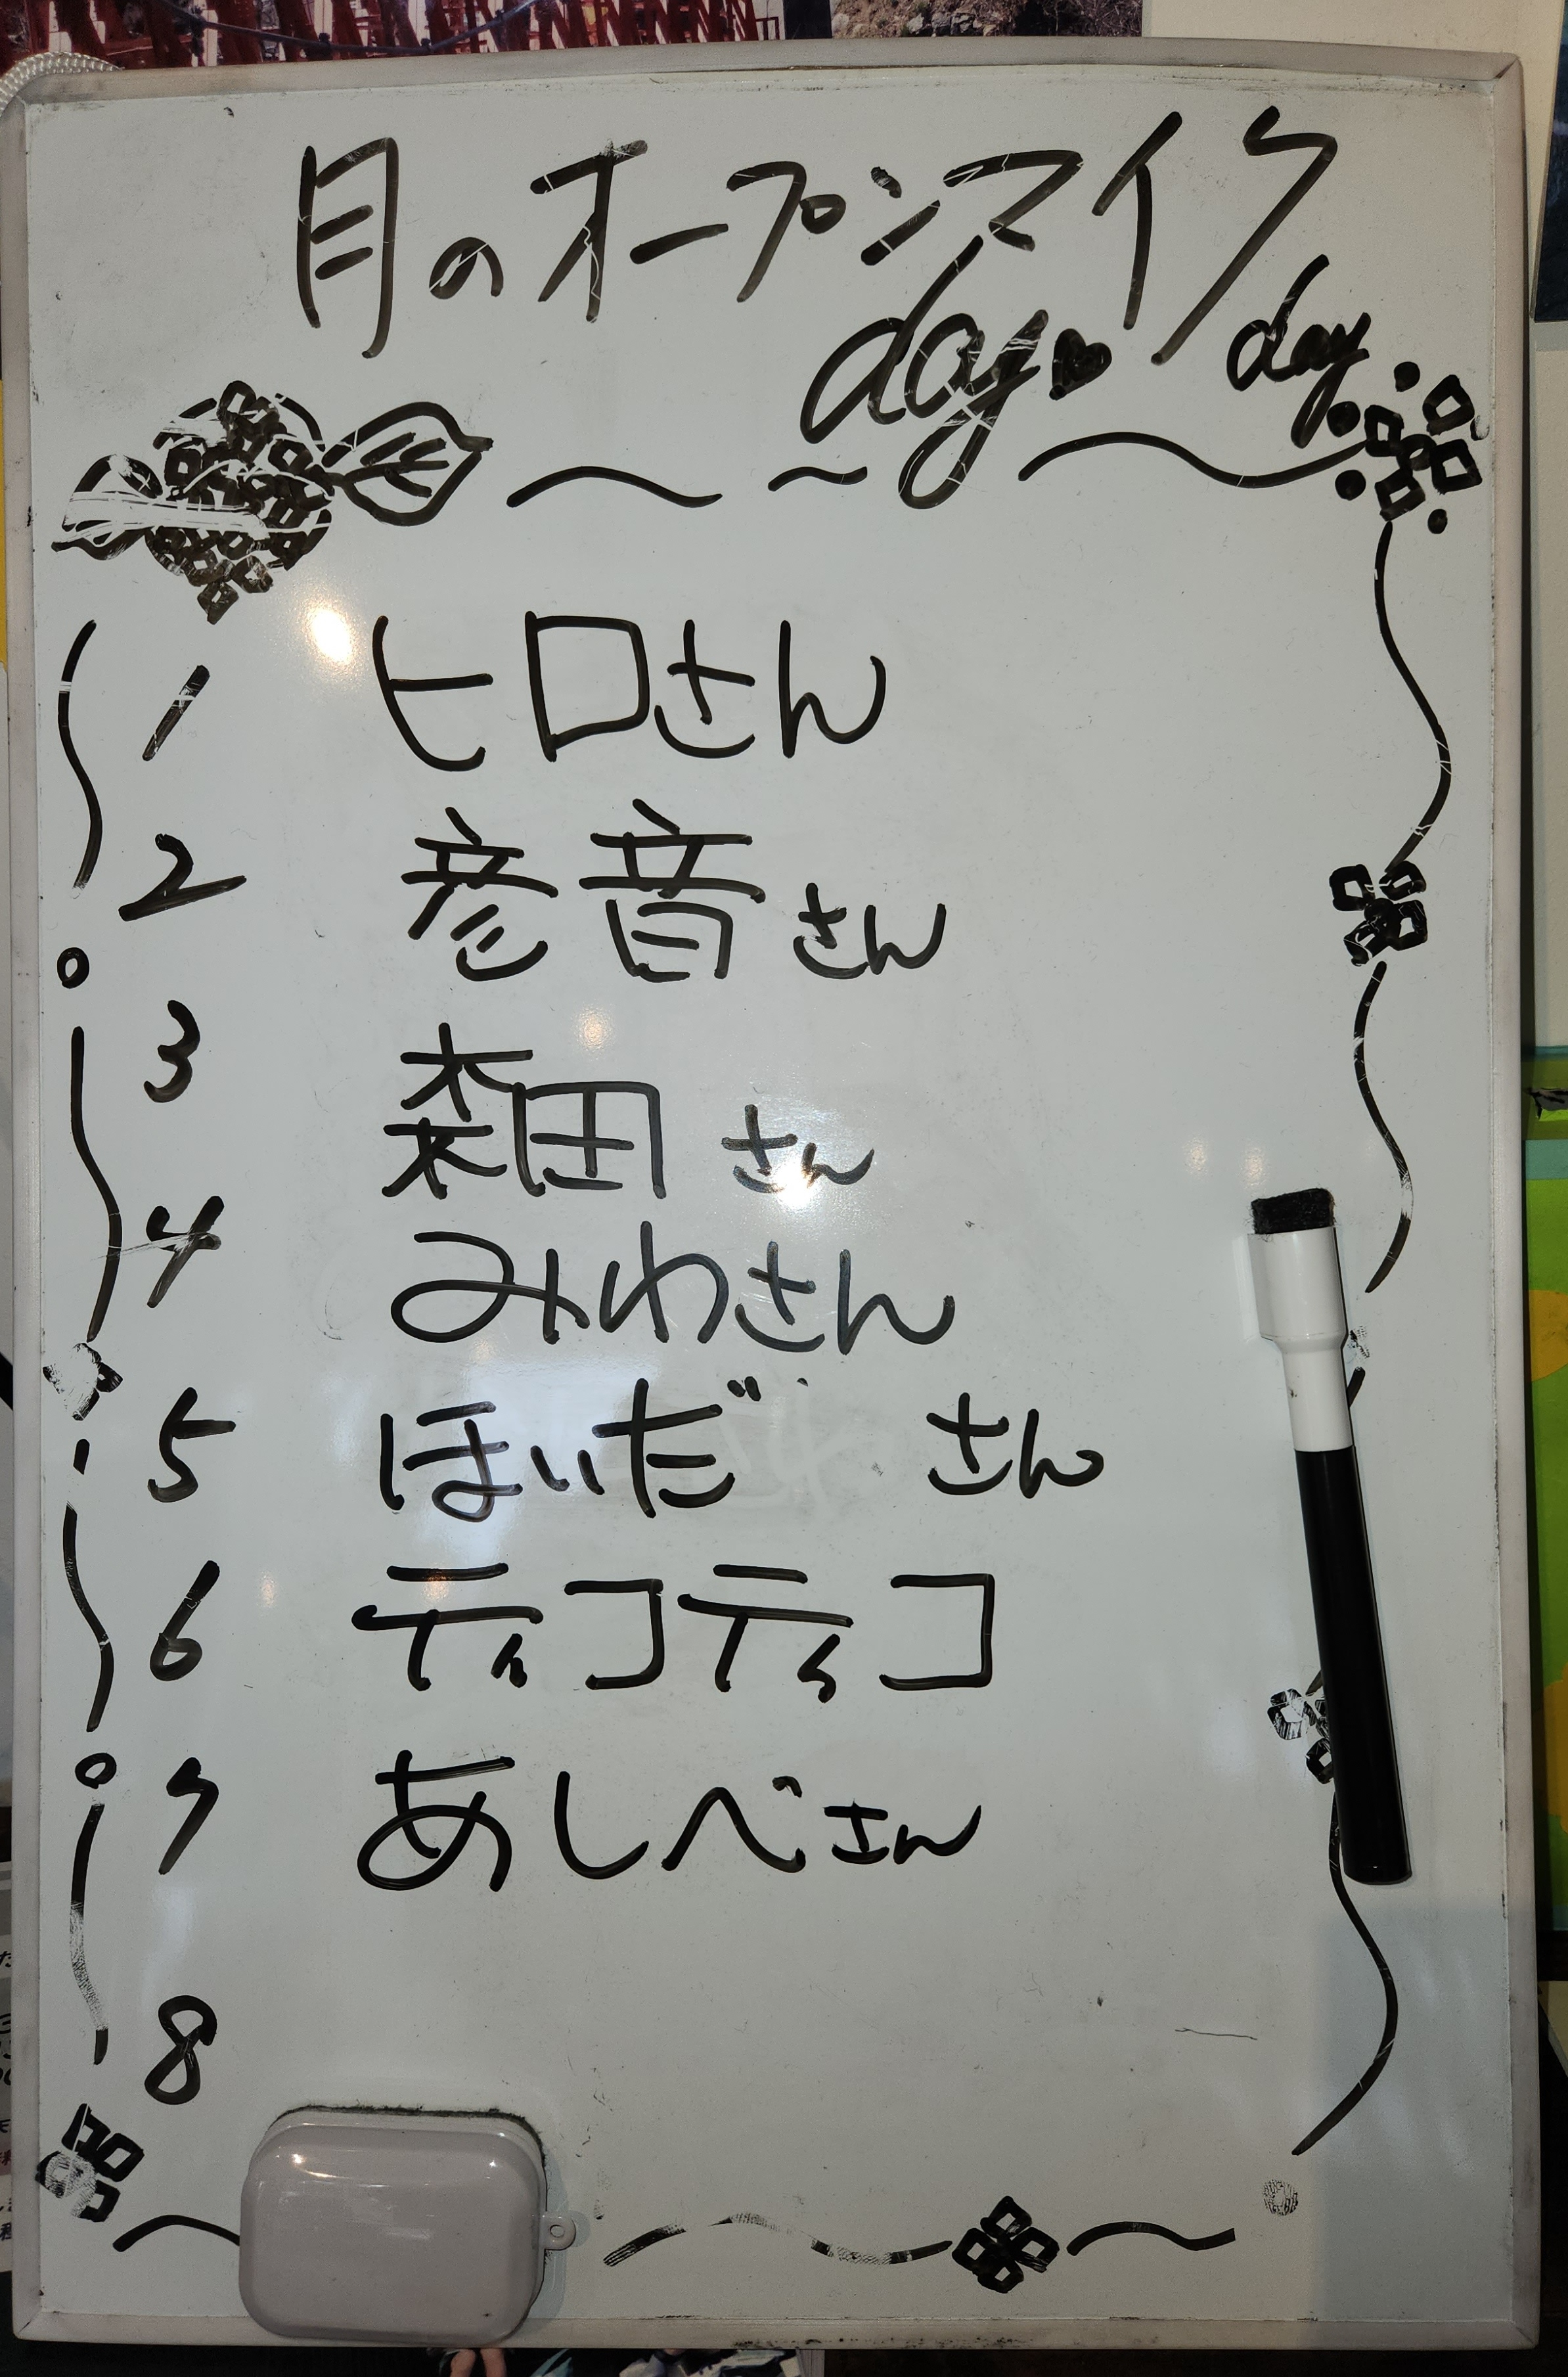 月のオープンマイク
day♥ day
1 ヒロさん
2 彦音さん
3 森田さん
4 みわさん
5 ほいだ さん
6 ティコティコ
7 あしべさん
8